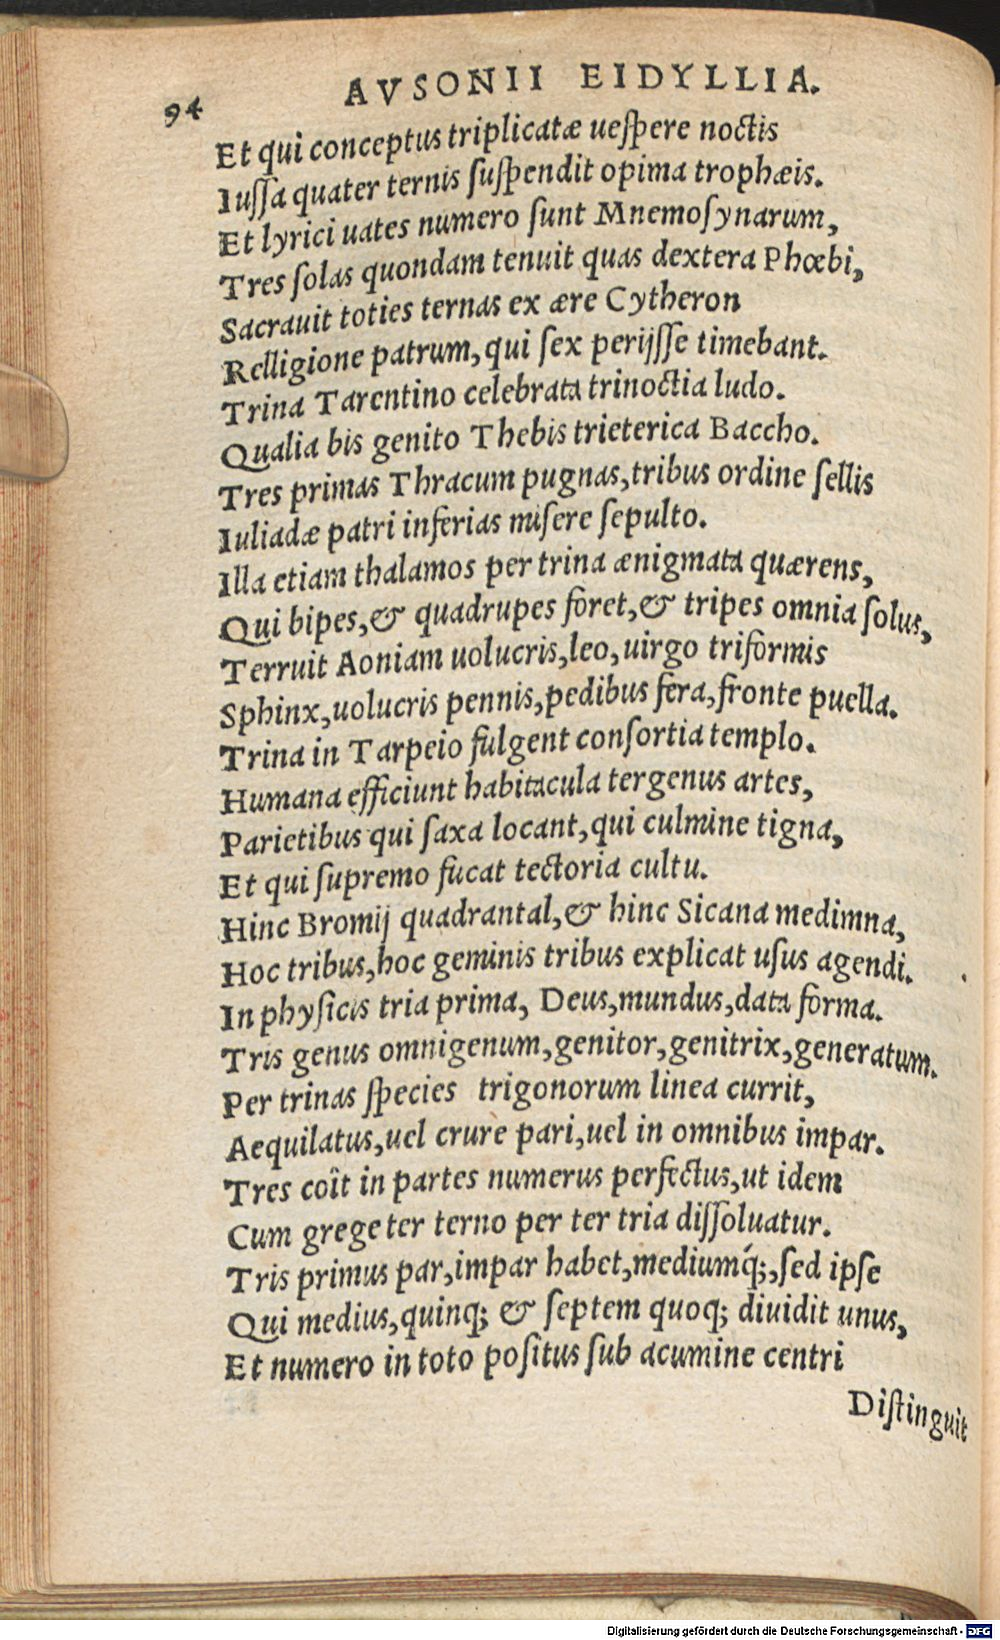 94
AVSONII EIDYLLIA.
Et qui conceptus triplicatæ ueſpere noctis
Iuſſa quater ternis ſuſpendit opima trophæis.
Et lyrici uates numero ſunt Mnemoſynarum,
Tres ſolas quondam tenuit quas dextera Phœbi,
Sacrauit toties ternas ex ære Cytheron
Relligione patrum, qui ſex perijſſe timebant.
Trina Tarentino celebrata trinoctia ludo.
Qualia bis genito Thebis trieterica Baccho.
Tres primas Thracum pugnas, tribus ordine ſellis
Iuliadæ patri inferias miſere ſepulto.
Illa etiam thalamos per trina ænigmata quærens,
Qui bipes, & quadrupes foret, & tripes omnia ſolus,
Terruit Aoniam uolucris, leo, uirgo triformis
Sphinx, uolucris pennis, pedibus fera, fronte puella.
Trina in Tarpeio fulgent conſortia templo.
Humana efficiunt habitacula tergenus artes,
Parietibus qui ſaxa locant, qui culmine tigna,
Et qui ſupremo fucat tectoria cultu.
Hinc Bromij quadrantal, & hinc Sicana medimna,
Hoc tribus, hoc geminis tribus explicat uſus agendi.
In phyſicis tria prima, Deus, mundus, data forma.
Tris genus omnigenum, genitor, genitrix, generatum.
Per trinas ſpecies trigonorum linea currit,
Aequilatus, uel crure pari, uel in omnibus impar.
Tres coît in partes numerus perfectus, ut idem
Cum grege ter terno per ter tria diſſoluatur.
Tris primus par, impar habet, mediumq́;, ſed ipſe
Qui medius, quinq; & ſeptem quoq; diuidit unus,
Et numero in toto poſitus ſub acumine centri
Diſtinguit
Digitalisierung gefördert durch die Deutsche Forschungsgemeinschaft - DFG